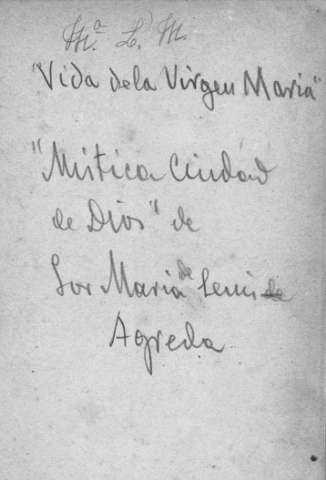 Mª L. M.
"Vida dela Virgen Maria"
"Mistica Ciudad
de Dios" de
Sor Maria de Jesus de
Agreda